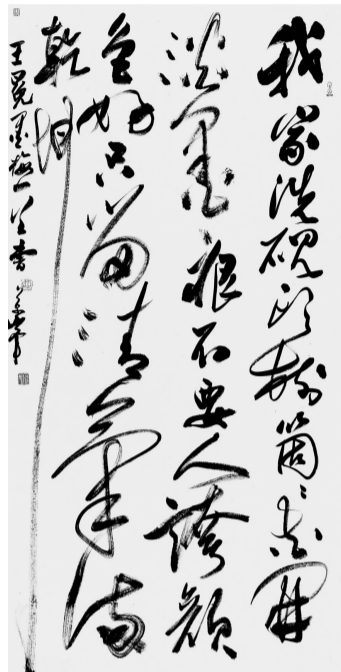 我家洗硯頭樹箇〻花開
淡墨痕不要人誇顏
色好只留清氣滿
乾坤
王冕墨梅一首